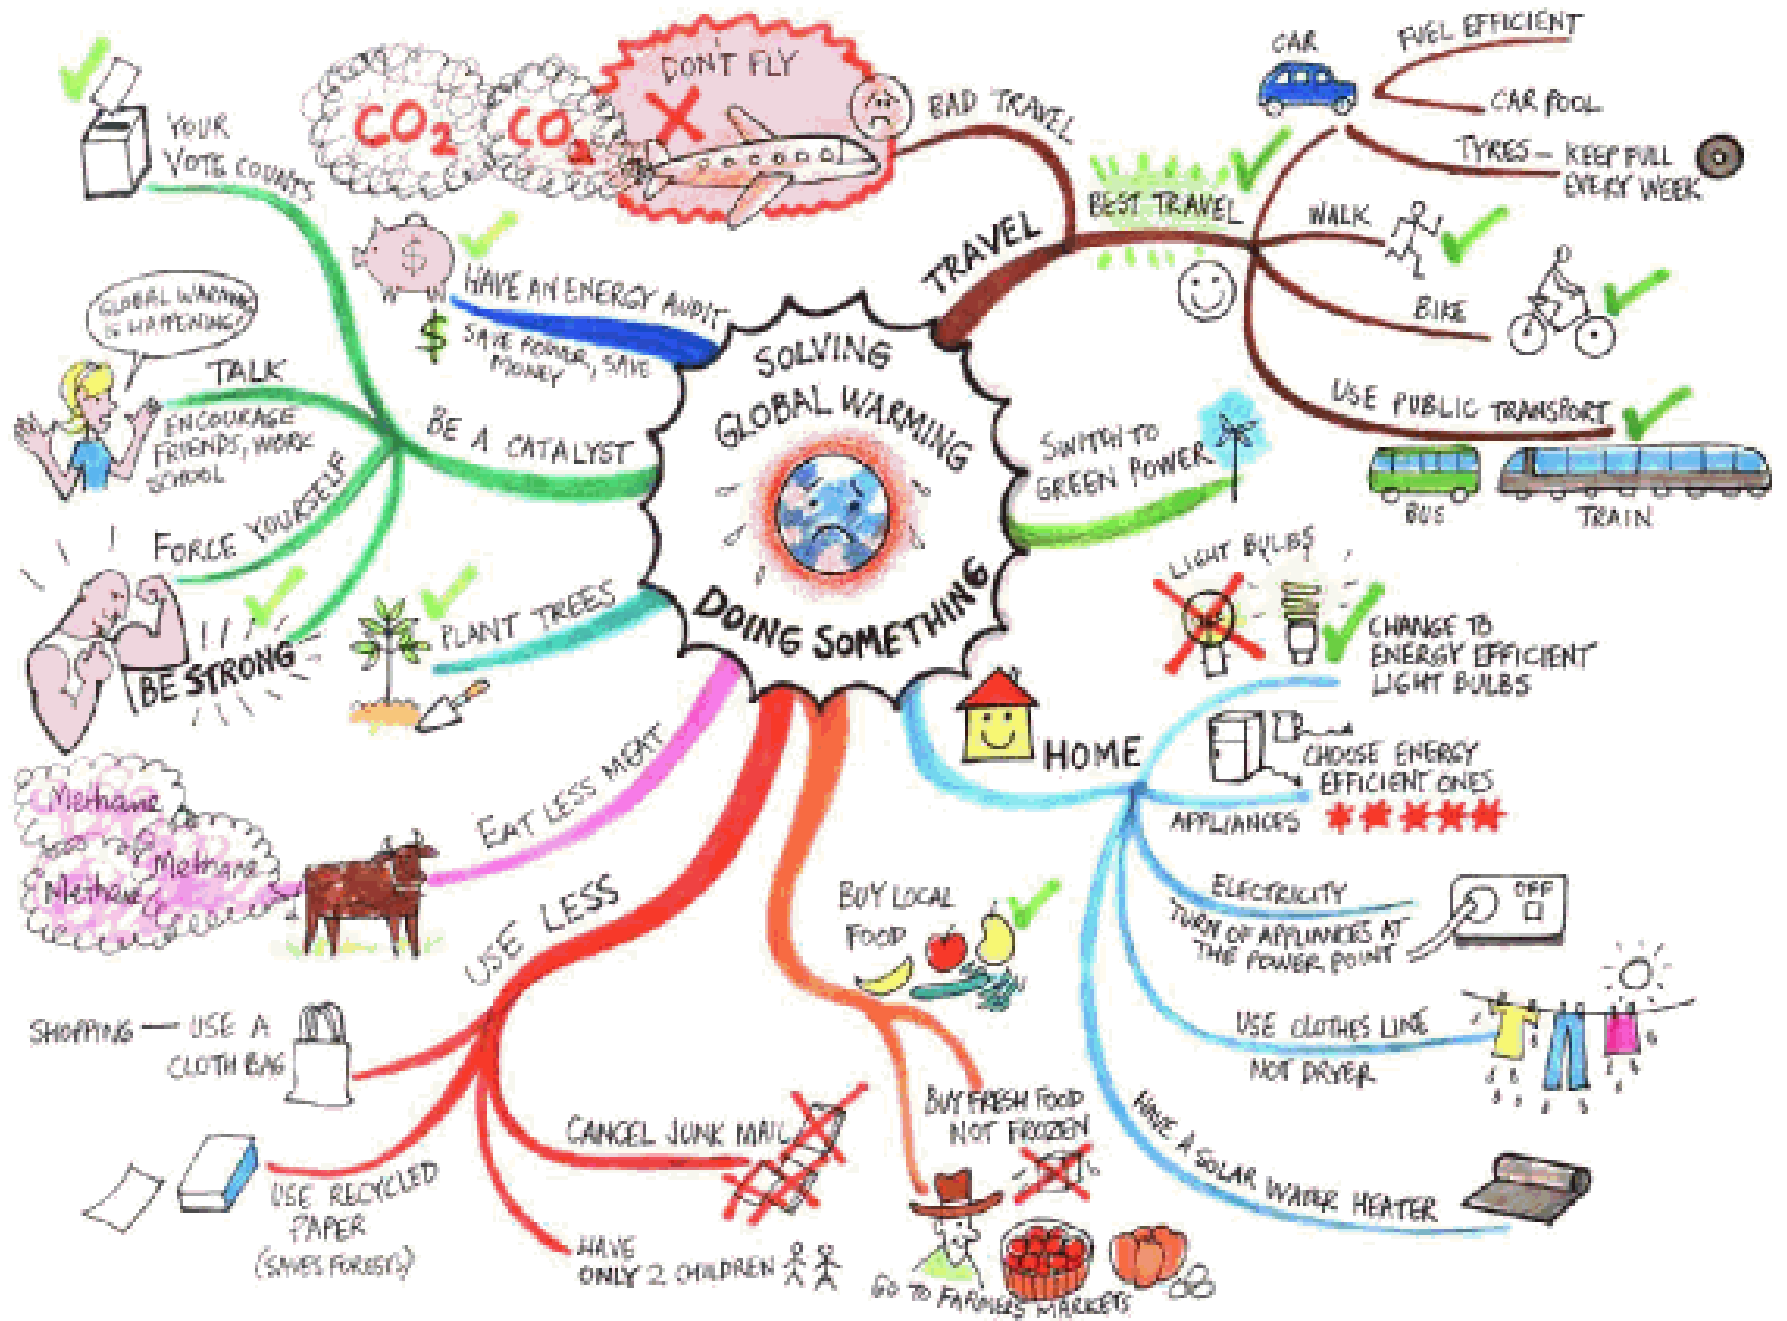 SOLVING
GLOBAL WARMING
DOING SOMETHING
TRAVEL
BAD TRAVEL
DON'T FLY
CO2
CO2
BEST TRAVEL
CAR
FUEL EFFICIENT
CAR POOL
TYRES – KEEP FULL
EVERY WEEK
WALK
BIKE
USE PUBLIC TRANSPORT
BUS
TRAIN
SWITCH TO
GREEN POWER
HOME
LIGHT BULBS
CHANGE TO
ENERGY EFFICIENT
LIGHT BULBS
CHOOSE ENERGY
EFFICIENT ONES
APPLIANCES
ELECTRICITY
OFF
TURN OF APPLIANCES AT
THE POWER POINT
USE CLOTHES LINE
NOT DRYER
HAVE A SOLAR WATER HEATER
BUY LOCAL
FOOD
BUY FRESH FOOD
NOT FROZEN
GO TO FARMERS MARKETS
USE LESS
SHOPPING — USE A
CLOTH BAG
USE RECYCLED
PAPER
(SAVES FORESTS)
CANCEL JUNK MAIL
HAVE
ONLY 2 CHILDREN
EAT LESS MEAT
Methane
Methane
Methane
PLANT TREES
BE A CATALYST
YOUR
VOTE COUNTS
TALK
ENCOURAGE
FRIENDS, WORK
SCHOOL
GLOBAL WARMING
IS HAPPENING!
FORCE YOURSELF
BE STRONG
HAVE AN ENERGY AUDIT
SAVE POWER, SAVE
MONEY
$
$